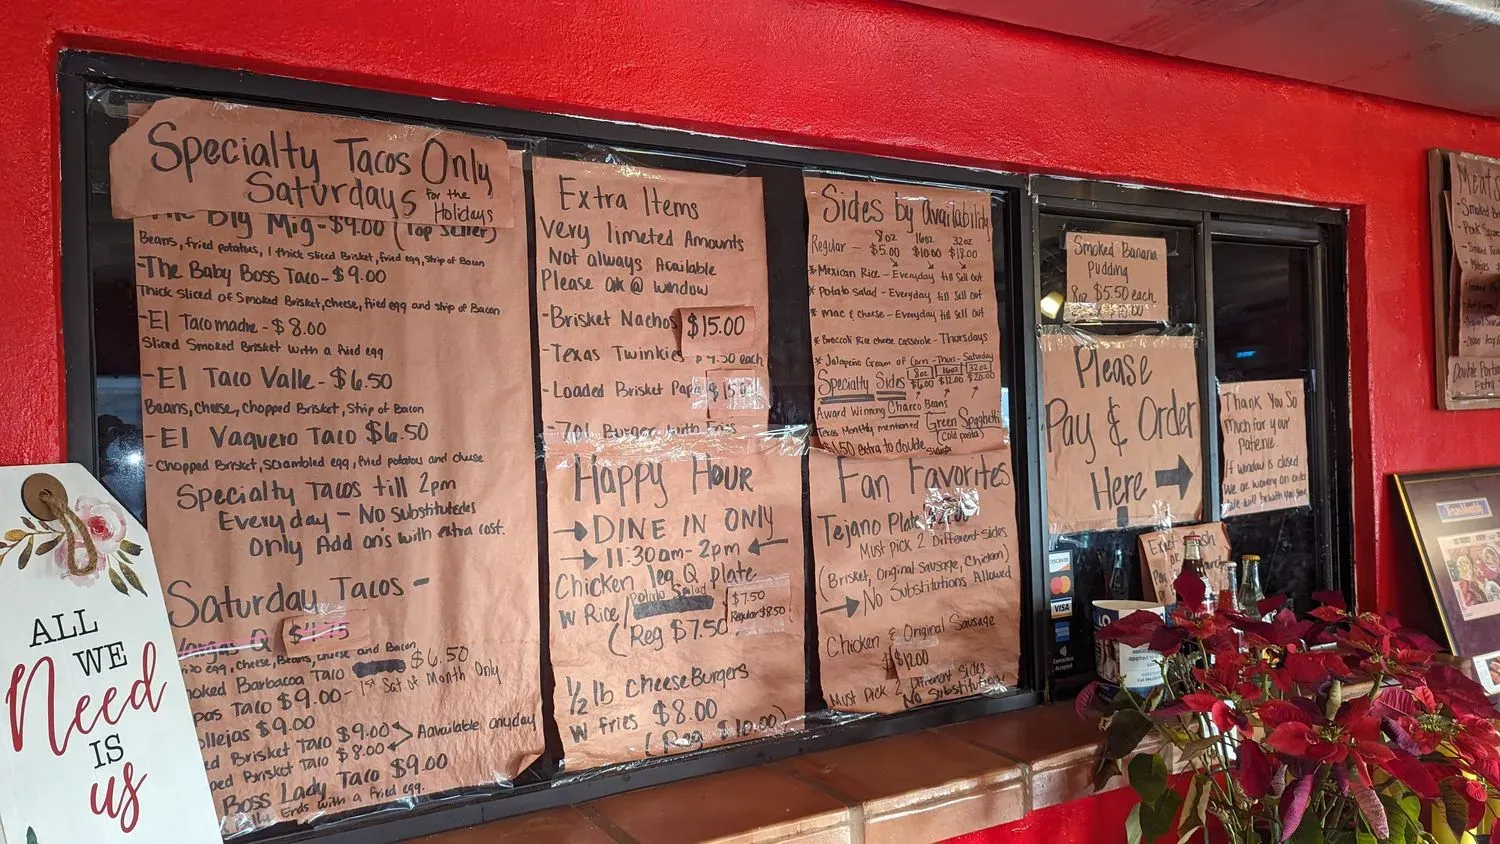 Specialty Tacos Only
Saturdays for the
Holidays
The Big Mig - $9.00 (Top Seller)
Beans, fried potatoes, 1 thick sliced Brisket, fried egg, Strip of Bacon
- The Baby Boss Taco - $9.00
Thick sliced of Smoked Brisket, cheese, fried egg and strip of Bacon
- El Tacomadre - $8.00
Sliced Smoked Brisket with a fried egg
- El Taco Valle - $6.50
Beans, Chese, Chopped Brisket, Strip of Bacon
- El Vaquero Taco $6.50
- Chopped Brisket, scrambled egg, fried potatoes and cheese
Specialty Tacos till 2pm
Everyday - No substitutes
Only Add on's with extra cost.
Saturday Tacos -
egg, Cheese, Beans, and Bacon
Barbacoa Taco $6.50
Taco $9.00 - 1st Sat of Month Only
$9.00
Brisket Taco $9.00
Brisket Taco $8.00 Aavailable anyday
Boss Lady Taco $9.00
with a fried egg.
Extra Items
Very limeted Amounts
Not always Available
Please ask @ window
- Brisket Nachos $15.00
- Texas Twinkies $4.50 each
- Loaded Brisket Papa
- 701 Burger with
Happy Hour
→ DINE IN ONLY
→ 11:30am - 2pm ←
Chicken leg Q plate
w Rice / Potato Salad
(Reg $7.50
$7.50
Regular $8.50
1/2 lb CheeseBurgers
w fries $8.00
(Reg $10.00)
Sides by Availability
8oz 16oz 32oz
Regular - $5.00 $10.00 $18.00
* Mexican Rice - Everyday till Sell out
* Potato Salad - Everyday till Sell out
* Mac & Cheese - Everyday till Sell out
* Broccoli Rice cheese casserole - Thursdays
* Jalapeño Cream of Corn - Thurs - Saturday
Specialty Sides 8oz 16oz 32oz
$6.00 $12.00 $20.00
Award Winning Charco Beans
Texas Monthly mentioned Green Spaghetti
(Cold pasta)
$1.50 extra to double
Fan Favorites
Tejano Plate
Must pick 2 Different sides
(Brisket, Original Sausage, Chicken)
→ No Substitutions Allowed
Chicken & Original Sausage
$12.00
Must Pick 2 Different Sides
No Substitutions
Smoked Banana
Pudding
8oz $5.50 each
Please
Pay & Order
Here →
Thank You So
Much for your
Patience
If window is closed
We are working on orders
We will be with you soon
DISCOVER
VISA
ALL
WE
Need
IS
us
Meats
Texas Monthly